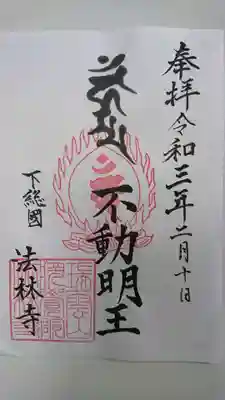 奉拝 令和三年二月十日
不動明王
下総國
法林寺